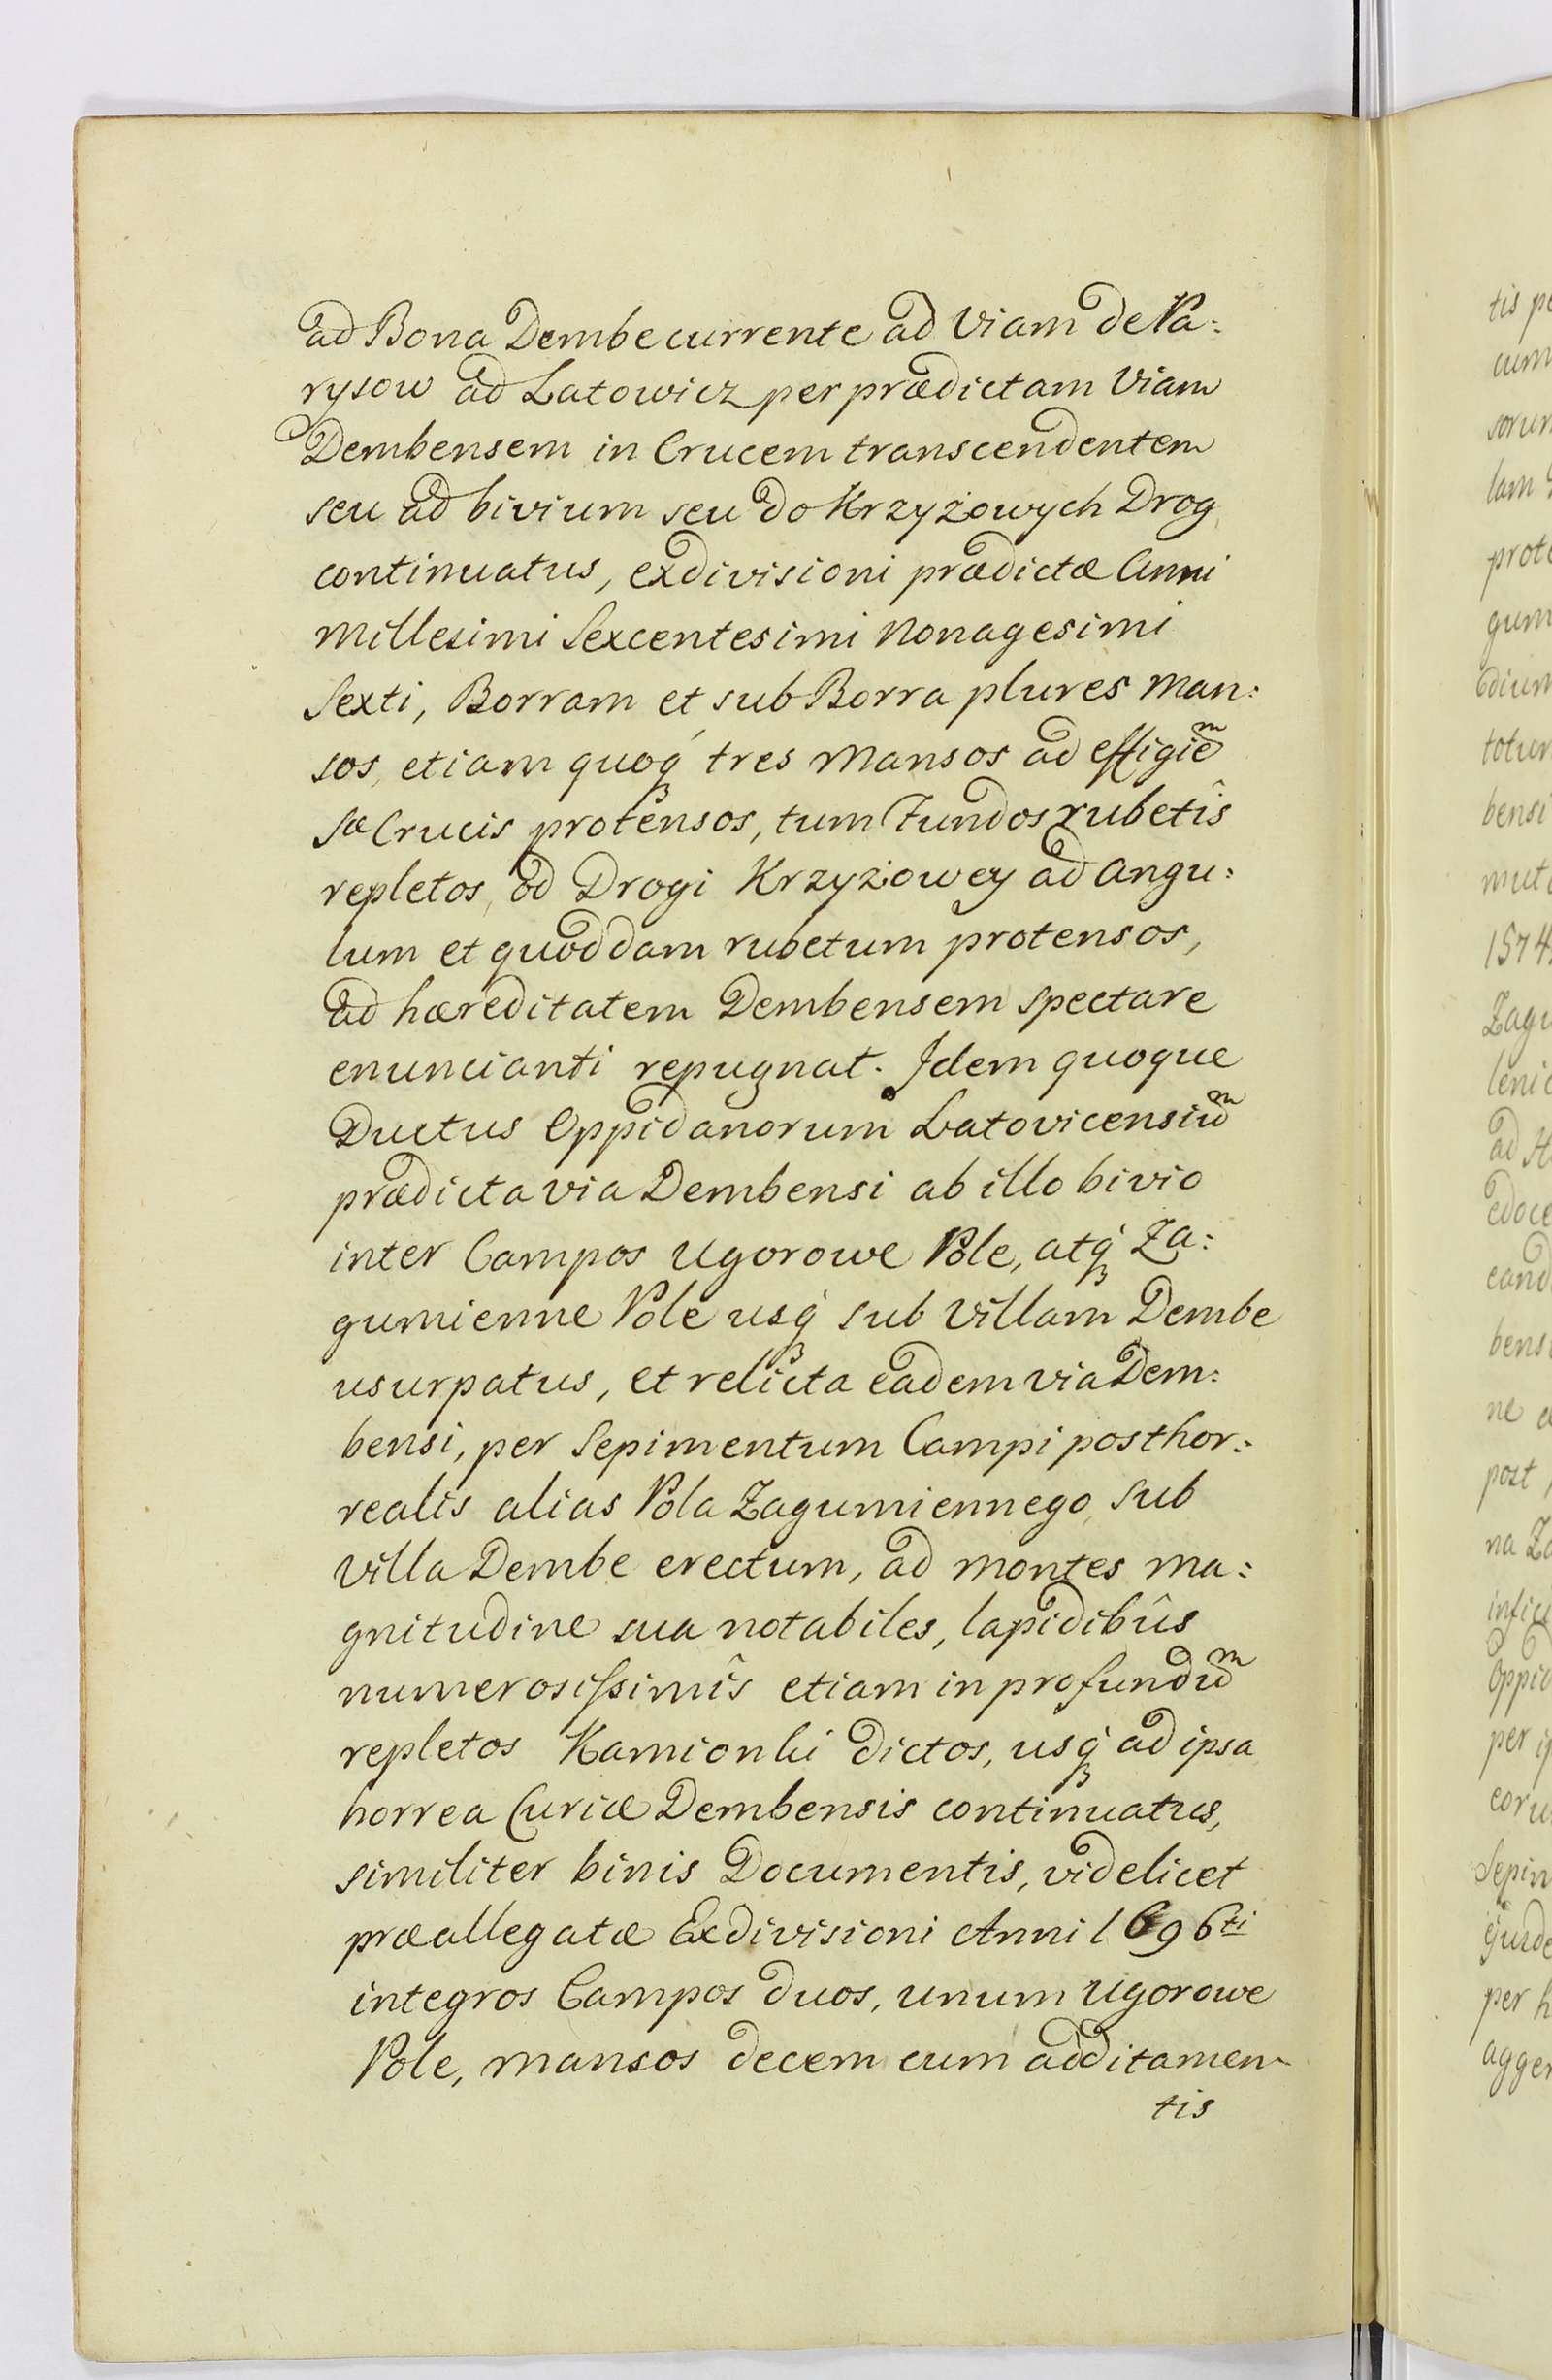 ad Bona Dembe currente ad Viam de Pa:
rysow ad Latowicz per prædictam Viam
Dembensem in Crucem transcendentem
seu ad bivium seu do Krzyżowych Drog
continuatus, exdivisioni prædictæ Anni
Millesimi Sexcentesimi Nonagesimi
Sexti, Borram et sub Borra plures Man:
sos, etiam quoq́ tres Mansos ad effigiem̃
Sæ Crucis protensos, tum Fundos rubetîs
repletos, od Drogi Krzyżowey ad Angu:
lum et quoddam rubetum protensos,
ad hæreditatem Dembensem spectare
enuncianti repugnat. Idem quoque
Ductus Oppidanorum Latovicensiũ
prædicta via Dembensi ab illo bivio
inter Campos Ugorowe Pole, atq́ Za:
gumienne Pole usq́ sub Villam Dembe
usurpatus, et relicta eadem via Dem:
bensi, per Sepimentum Campi posthor:
realis alias Pola Zagumiennego, sub
Villa Dembe erectum, ad Montes ma:
gnitudine sua notabiles, lapidibûs
numerosissimîs etiam in profundũ
repletos Kamionki dictos, usq́ ad ipsa
horrea Curiæ Dembensis continuatus,
similiter binis Documentis, videlicet
præallegatæ Exdivisioni Anni 1696ti
integros Campos duos, unum Ugorowe
Pole, mansos decem cum additamen-
tis